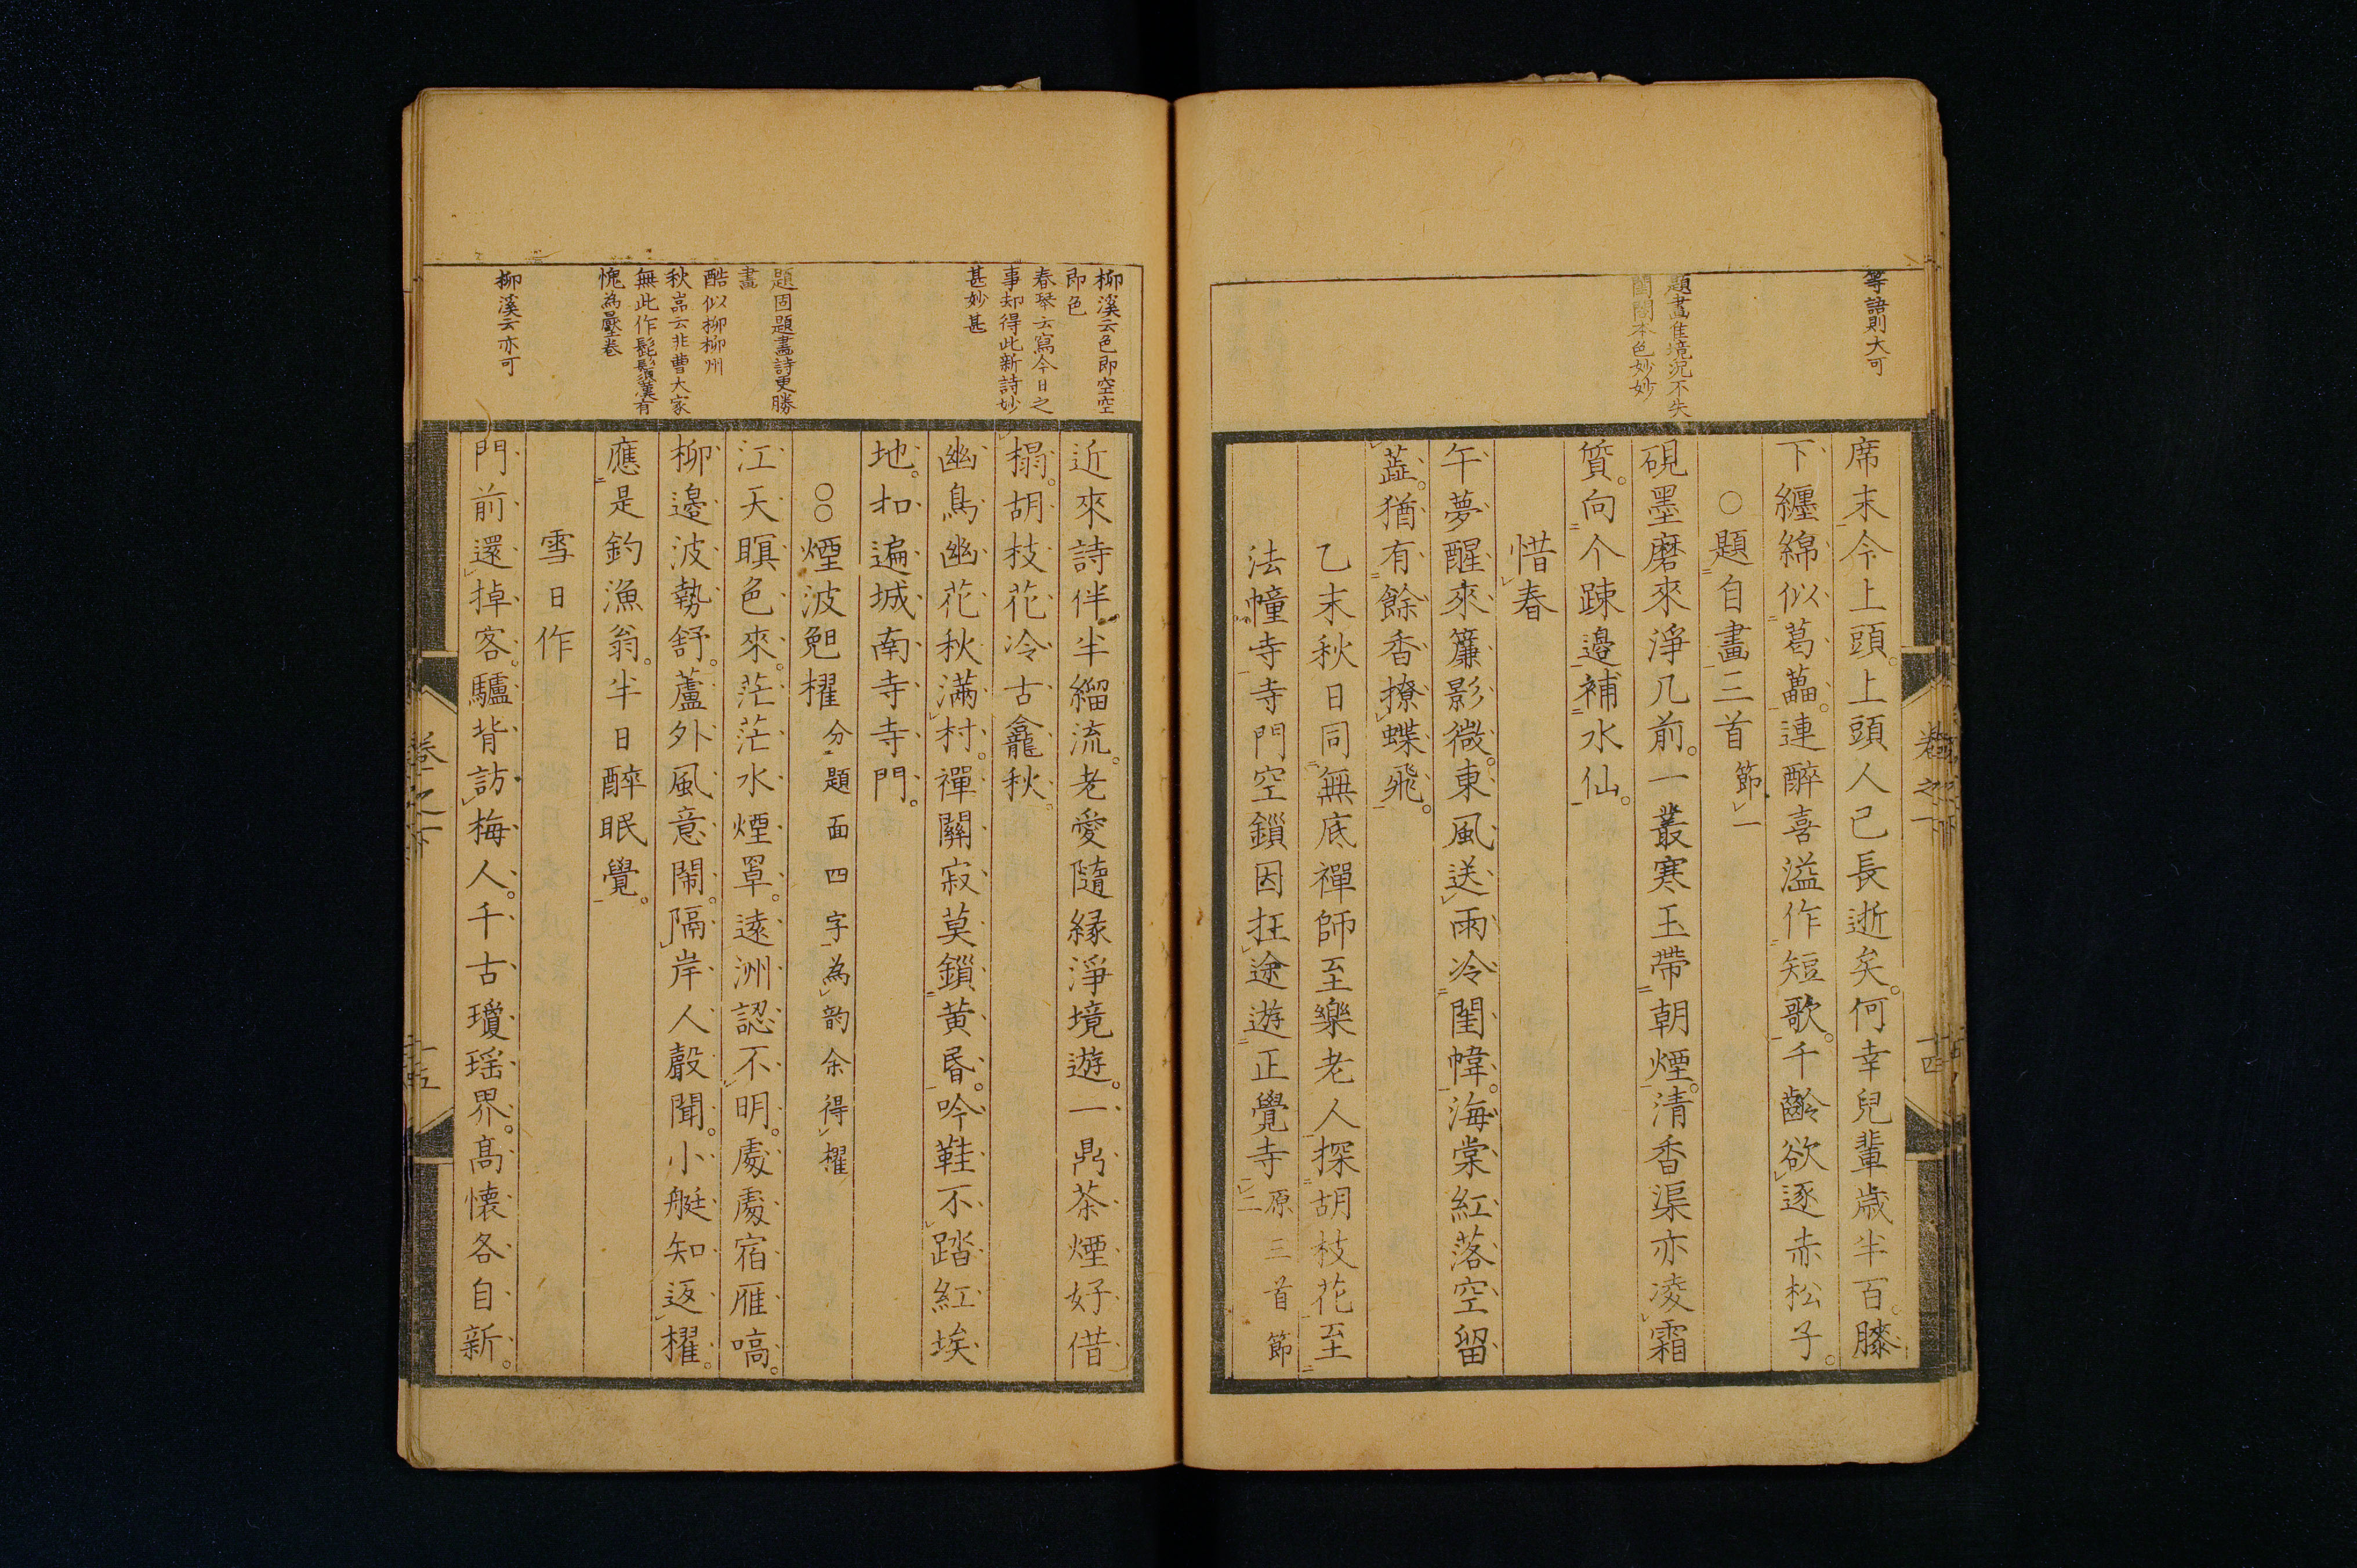 等語則大可
題畫佳境況不失
閨閤本色妙妙
席末今上頭。上頭人已長逝矣。何幸兒輩歳半百。膝
下纏綿似葛藟。連醉喜溢作短歌。千齡欲逐赤松子。
○題自畫三首節一
硯墨磨來淨几前。一叢寒玉帶朝煙。清香渠亦凌霜
質。向个踈邉補水仙。
惜春
午夢醒來簾影微。東風送雨冷閨幃。海棠紅落空留
蕋。猶有餘香撩蝶飛。
乙未秋日同無底禪師至樂老人探胡枝花至
法幢寺寺門空鎖因抂途遊正覺寺原三首節二
卷之下
十四
柳溪云色即空空
即色
春琴云寫今日之
事却得此新詩妙
甚妙甚
題固題畫詩更勝
畫
酷似柳柳州
秋嵓云非曹大家
無此作髭鬚漢有
愧為壓卷
柳溪云亦可
近來詩伴半緇流。老愛隨縁淨境遊。一鼎茶煙好借
榻。胡枝花冷古龕秋。
幽鳥幽花秋滿村。禪關寂莫鎖黄昏。吟鞋不踏紅埃
地。扣遍城南寺寺門。
○○煙波艶櫂分題面四字為韵余得櫂
江天瞑色來。茫茫水煙罩。遠洲認不明。處處宿雁嗃。
柳邉波勢舒。蘆外風意鬧。隔岸人聲聞。小艇知返櫂。
應是釣漁翁。半日醉眠覺。
雪日作
門前還掉客。驢背訪梅人。千古瓊瑶界。髙懐各自新。
卷之下
十五